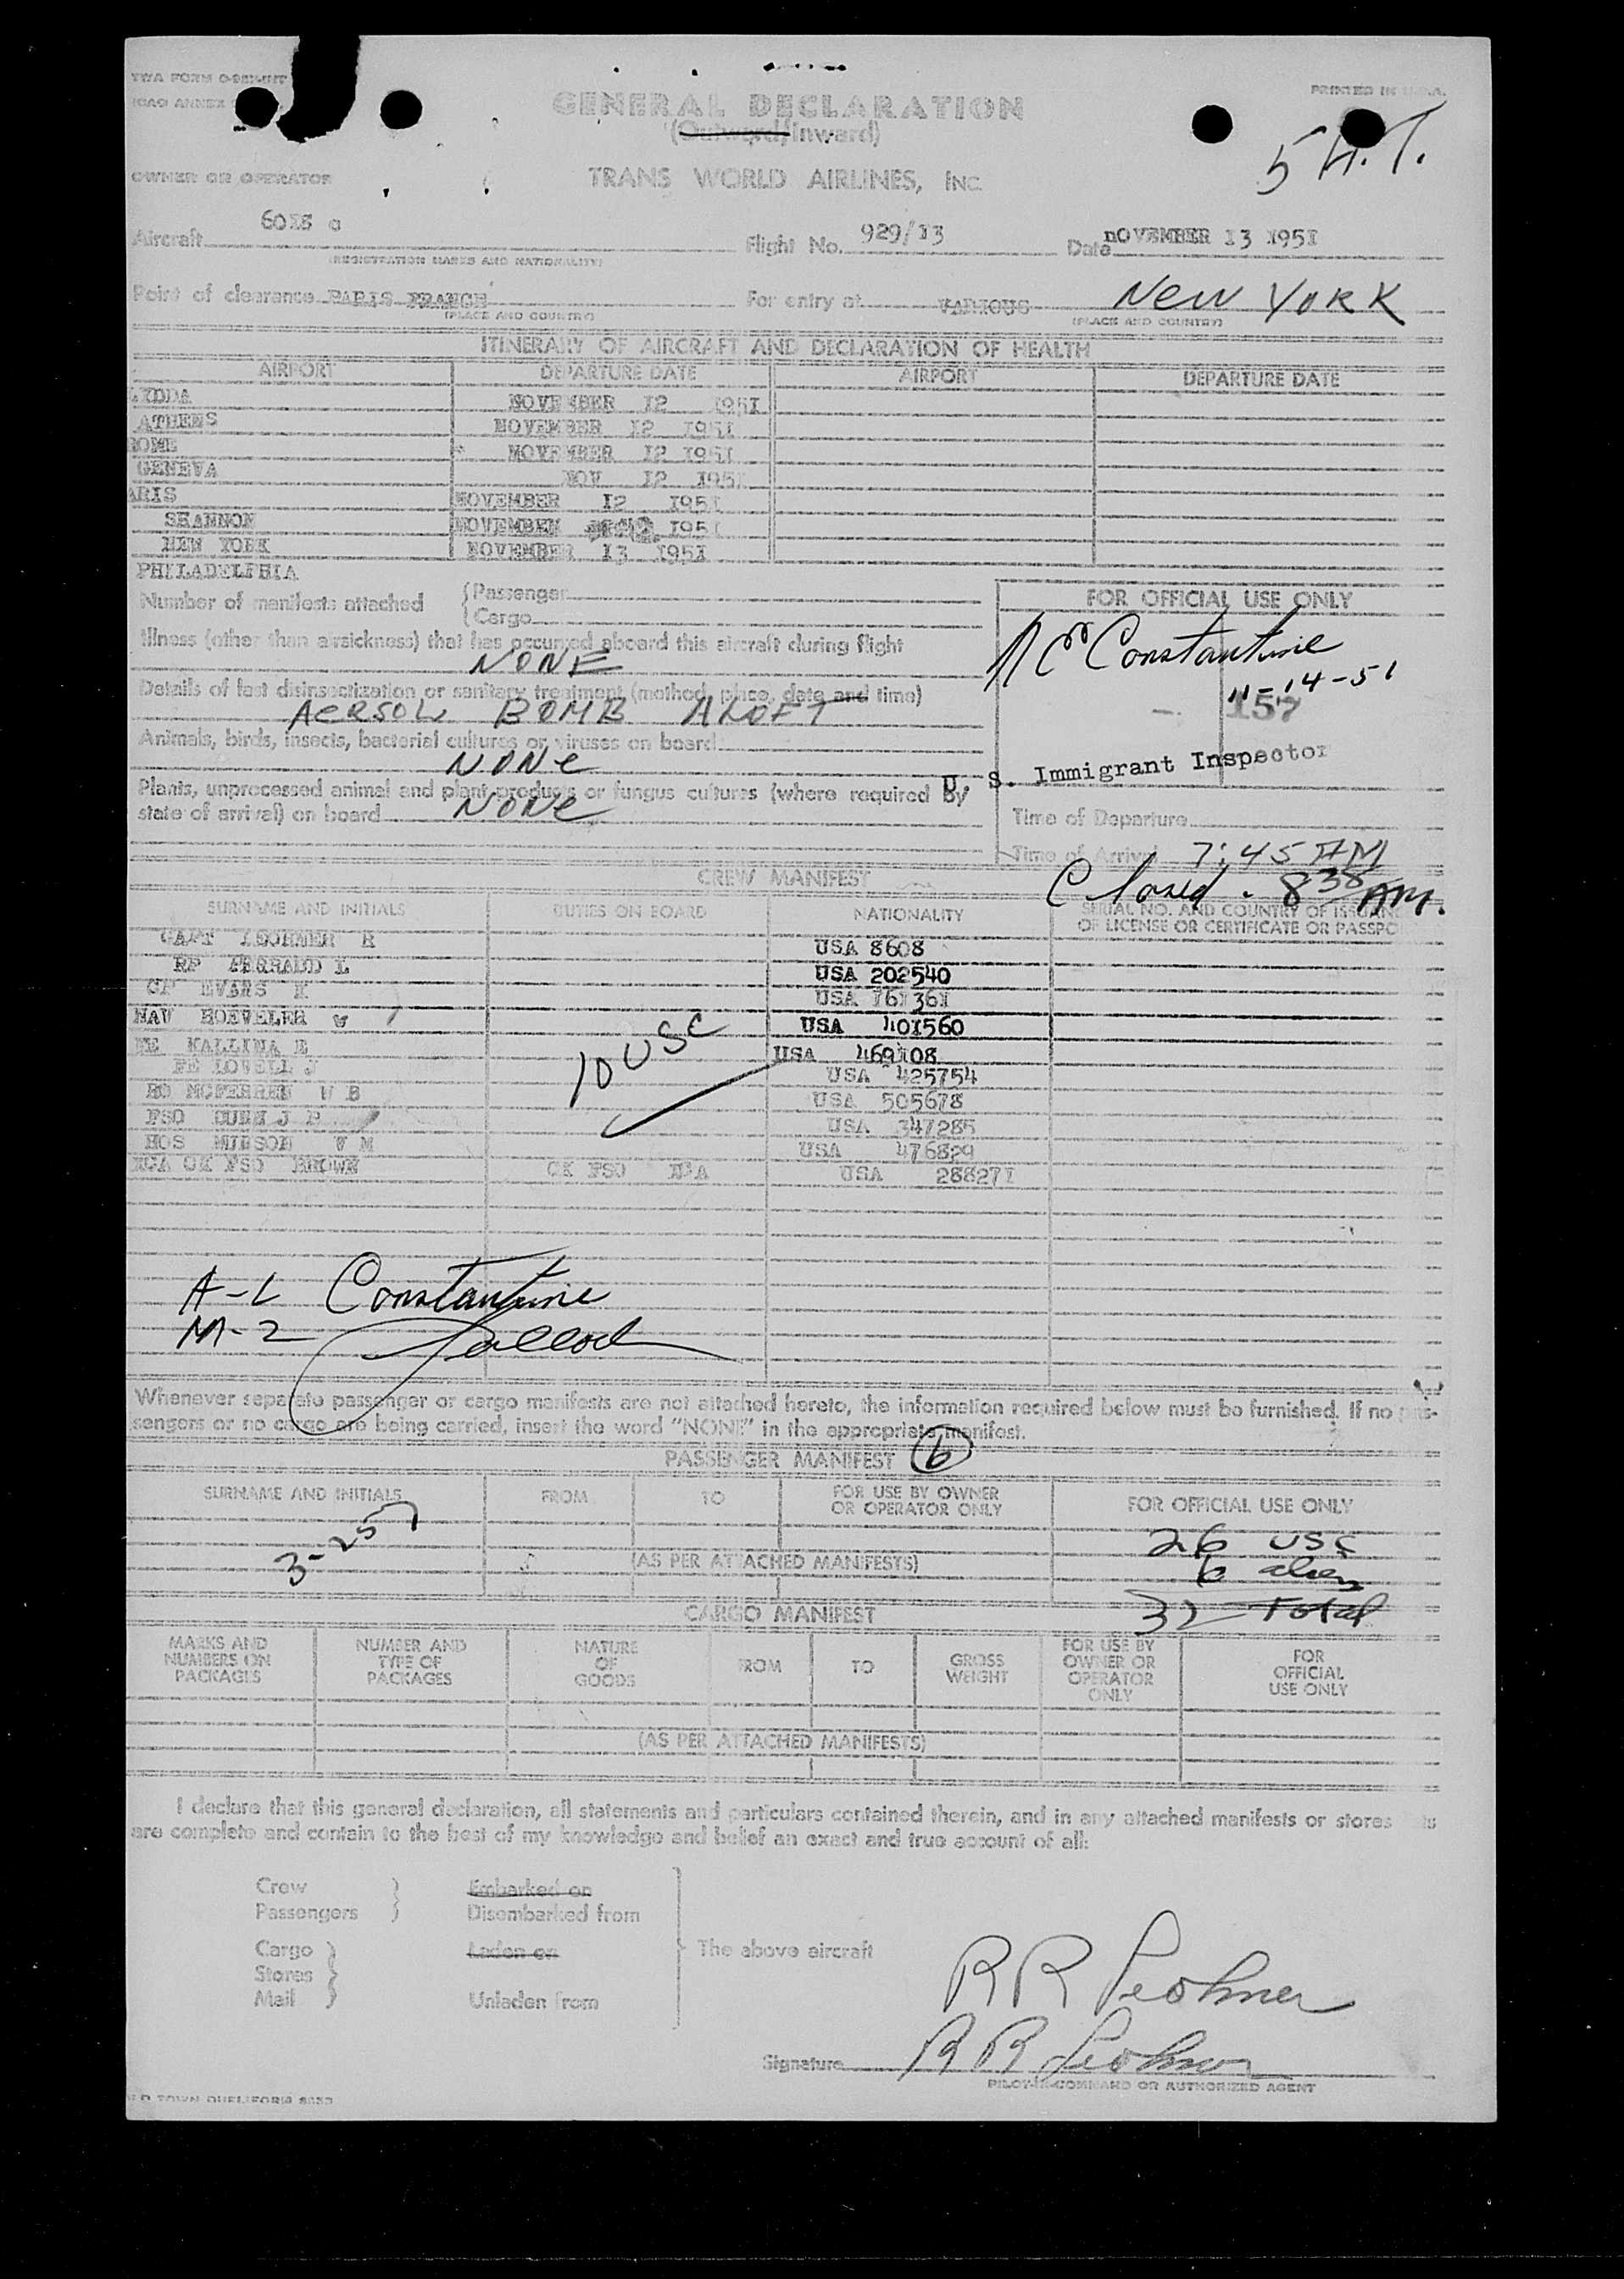 TWA FORM
PRINTED IN U.S.A.
ICAO ANNEX
GENERAL DECLARATION
(Outward/Inward)
5 H.T.
OWNER OR OPERATOR TRANS WORLD AIRLINES, INC.
Aircraft Flight No. 929/13 Date nOVEMBER 13 1951
(REGISTRATION MARKS AND NATIONALITY)
Point of clearance PARIS FRANCE For entry at VARIOUS New YORK
(PLACE AND COUNTRY) (PLACE AND COUNTRY)
ITINERARY OF AIRCRAFT AND DECLARATION OF HEALTH
AIRPORT DEPARTURE DATE AIRPORT DEPARTURE DATE
LYDDA NOVEMBER 12 1951
ATHENS NOVEMBER 12 1951
ROME NOVEMBER 12 1951
GENEVA NOV 12 1951
ARIS NOVEMBER 12 1951
SHANNON NOVEMBER 1951
NEW YORK NOVEMBER 13 1951
PHILADELPHIA
Number of manifests attached (Passenger
(Cargo
FOR OFFICIAL USE ONLY
Illness (other than airsickness) that has occurred aboard this aircraft during flight
NONE
Constantine
11-14-51
157
Details of last disinsectization or sanitary treatment (method, place, date and time)
AERSOL BOMB ALOFT
Animals, birds, insects, bacterial cultures or viruses on board
NONe
U. S. Immigrant Inspector
Plants, unprocessed animal and plant products or fungus cultures (where required by
state of arrival) on board NONe
Time of Departure
Time of Arrival 7:45 AM
Closed - 838 AM.
CREW MANIFEST
SURNAME AND INITIALS DUTIES ON BOARD NATIONALITY SERIAL NO. AND COUNTRY OF ISSUANC
OF LICENSE OR CERTIFICATE OR PASSPO
CAPT R USA 8608
L USA 202540
EVANS USA 761361
NAV HOEVELER USA 401560
KALLINA E USA 469108
FE LOVELL J USA 425754
W B USA 505678
PSO J USA 347285
HOS W M USA 476829
PSO BROWN CK PSO USA 288271
10 USC
A-L Constantine
M-2
Whenever separate passenger or cargo manifests are not attached hereto, the information required below must be furnished. If no pas-
sengers or no cargo are being carried, insert the word "NONE" in the appropriate manifest.
PASSENGER MANIFEST 6
SURNAME AND INITIALS FROM TO FOR USE BY OWNER
OR OPERATOR ONLY FOR OFFICIAL USE ONLY
3-257
26 USC
(AS PER ATTACHED MANIFESTS)
6 alien
32 Total
CARGO MANIFEST
MARKS AND
NUMBERS ON
PACKAGES
NUMBER AND
TYPE OF
PACKAGES
NATURE
OF
GOODS
FROM
TO
GROSS
WEIGHT
FOR USE BY
OWNER OR
OPERATOR
ONLY
FOR
OFFICIAL
USE ONLY
(AS PER ATTACHED MANIFESTS)
I declare that this general declaration, all statements and particulars contained therein, and in any attached manifests or stores
are complete and contain to the best of my knowledge and belief an exact and true account of all:
Crew Embarked on
Passengers Disembarked from
Cargo Laden on The above aircraft
Stores
Mail Unladen from
R R Leohner
Signature R R Leohner
PILOT-IN-COMMAND OR AUTHORIZED AGENT